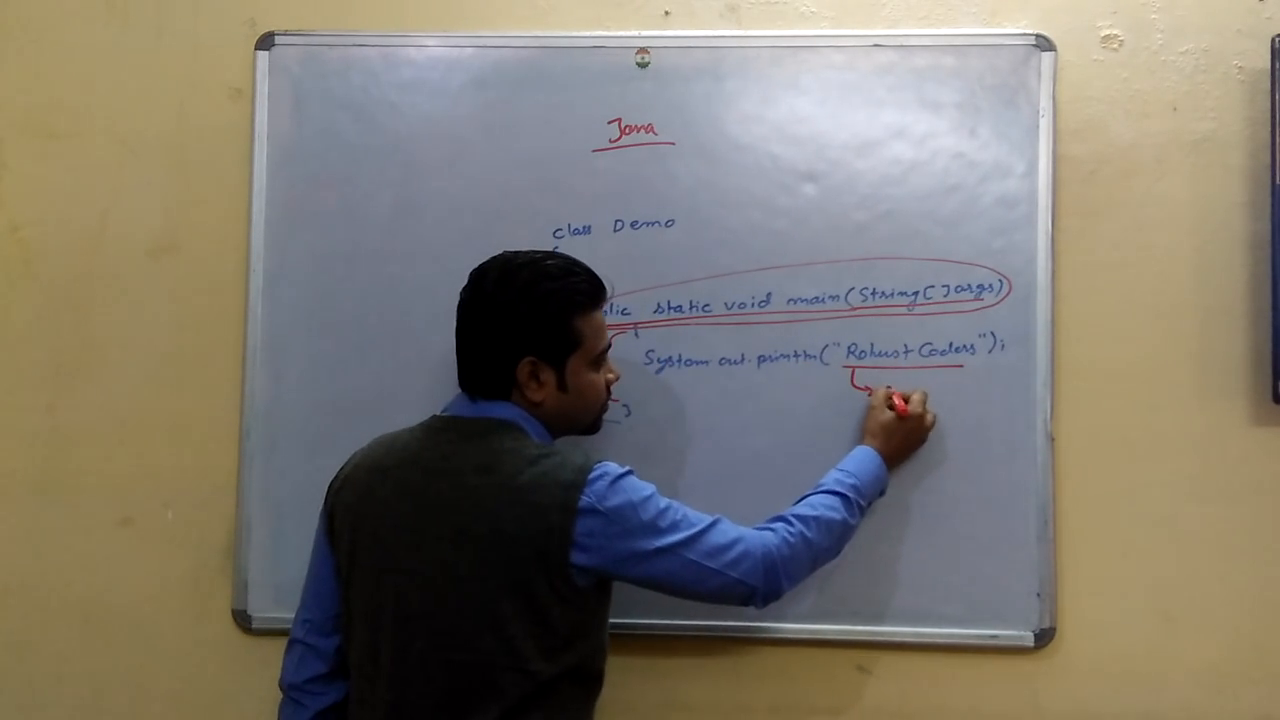 Java
class Demo
{
lic static void main(String[] args)
{
System.out.println("Robust Coders");
}